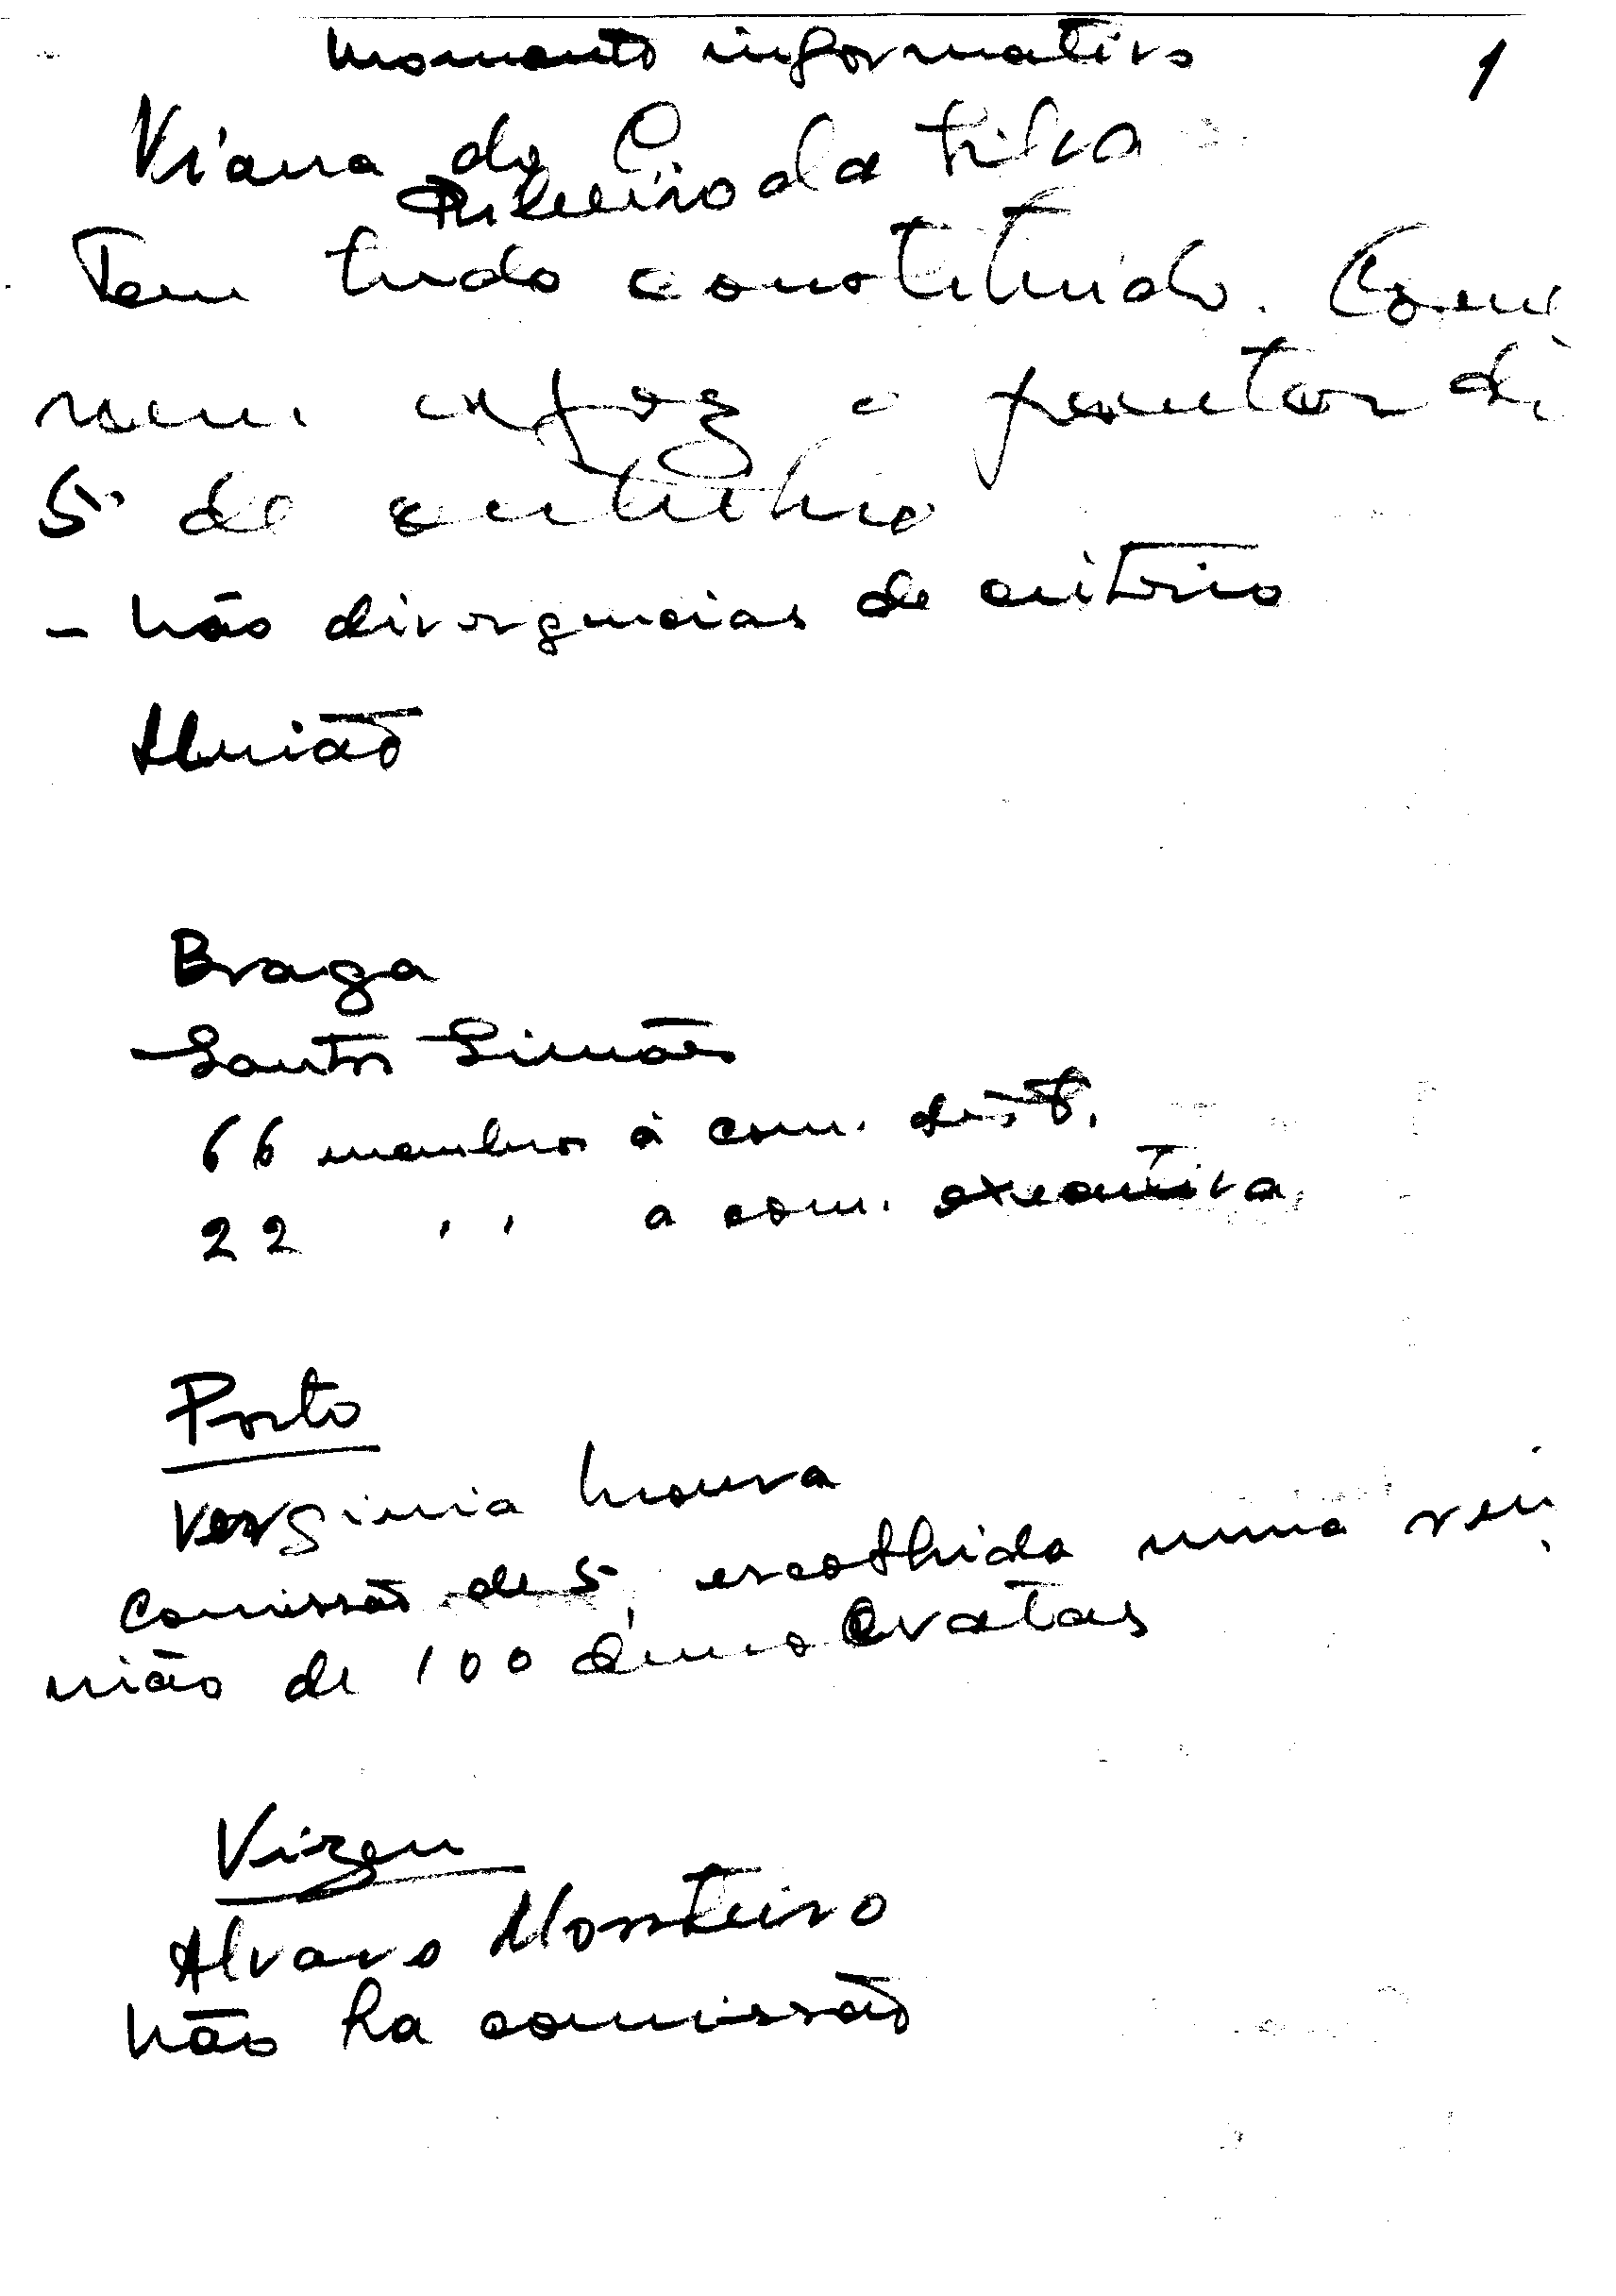 Momento informativo 1
Viana do C.
Ribeiro da Silva
Tem tudo constituido. Come
ram a foz o jantar di
5 de outubro
- Não divergencias de criterio
União
Braga
Santos Simões
66 membros à com. dist.
22 " a com. executiva
Porto
Verginia Moura
Comissão de 5, escolhida numa reu
nião de 100 democratas
Vizeu
Alvaro Monteiro
Não ha comissão